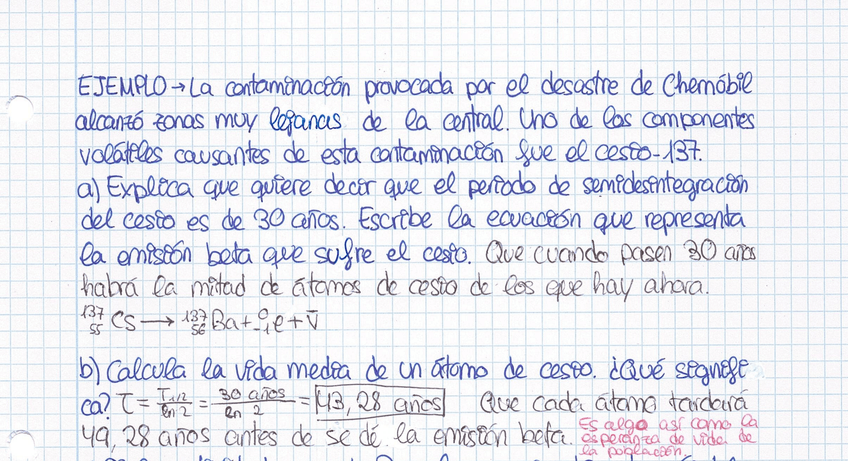 EJEMPLO → La contaminación provocada por el desastre de Chernóbil
alcanzó zonas muy lejanas de la central. Uno de los componentes
volátiles causantes de esta contaminación fue el cesio-137.
a) Explica que quiere decir que el periodo de semidesintegración
del cesio es de 30 años. Escribe la ecuación que representa
la emisión beta que sufre el cesio. Que cuando pasen 30 años
habrá la mitad de átomos de cesio de los que hay ahora.
¹³⁷₅₅Cs → ¹³⁷₅₆Ba + ⁰₋₁e + ν̄
b) Calcula la vida media de un átomo de cesio. ¿Qué signifi
ca? τ = T1/2 / ln 2 = 30 años / ln 2 = 43,28 años Que cada átomo tardará
49,28 años antes de se dé la emisión beta. Es algo así como la
esperanza de vida de
la poglación.